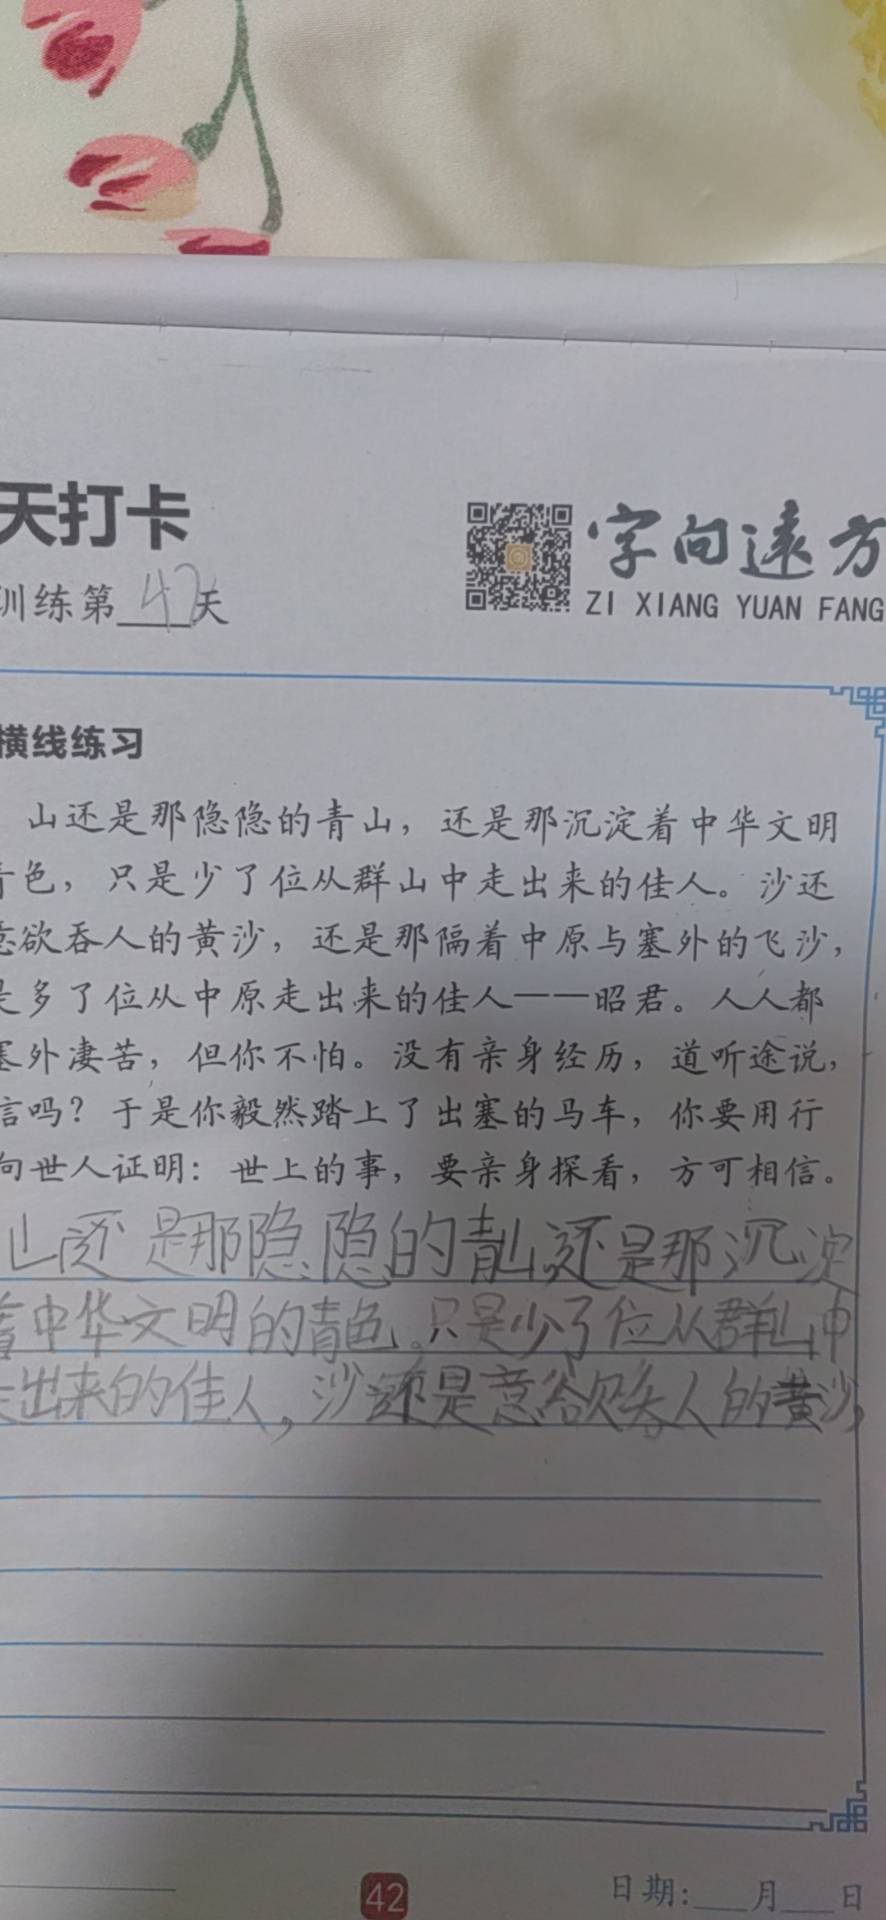 天打卡
训练第42天
字向远方
ZI XIANG YUAN FANG
横线练习
山还是那隐隐的青山，还是那沉淀着中华文明
青色，只是少了位从群山中走出来的佳人。沙还
意欲吞人的黄沙，还是那隔着中原与塞外的飞沙，
是多了位从中原走出来的佳人——昭君。人人都
塞外凄苦，但你不怕。没有亲身经历，道听途说，
信吗？于是你毅然踏上了出塞的马车，你要用行
向世人证明：世上的事，要亲身探看，方可相信。
山还是那隐隐的青山还是那沉淀
着中华文明的青色。只是少了位从群山中
走出来的佳人，沙还是意欲吞人的黄沙，
42
日期：___月___日